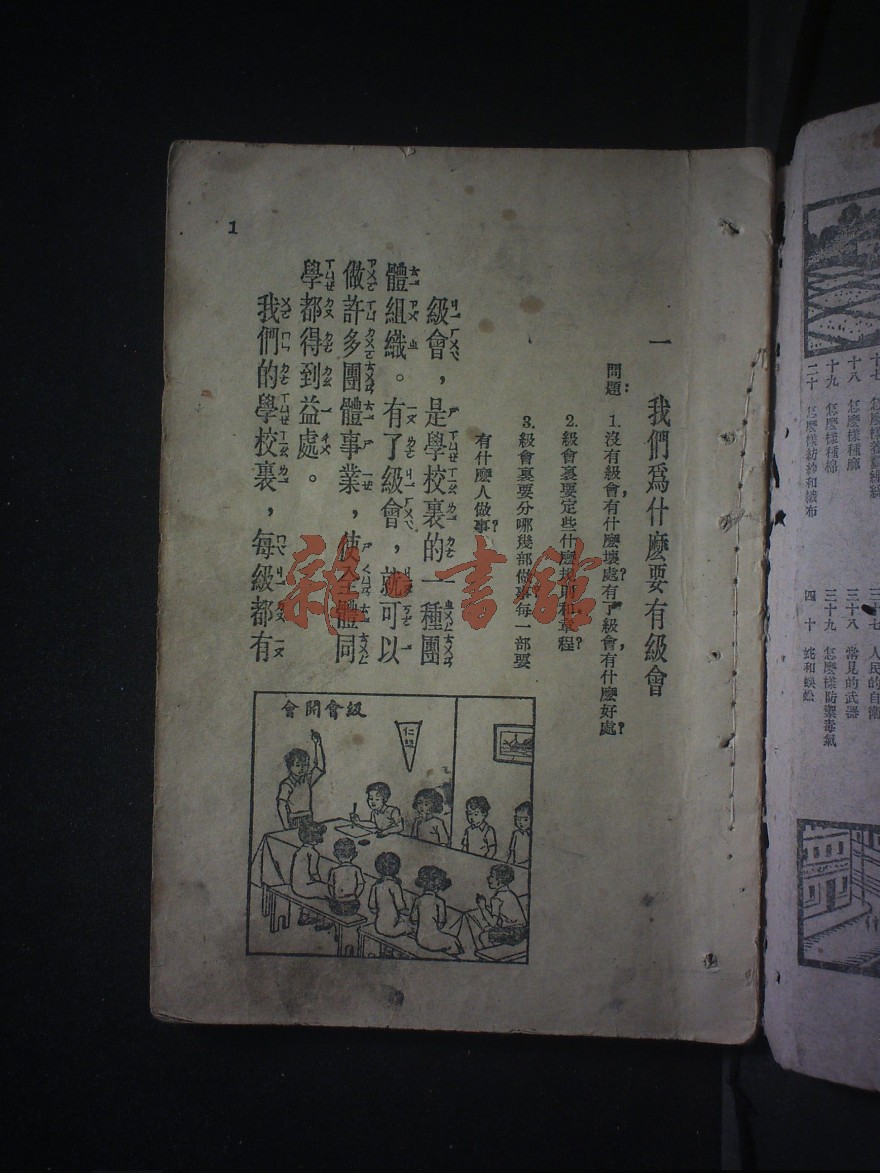 一　我們爲什麽要有級會
問題：1. 沒有級會，有什麽壞處？有了級會，有什麽好處？
2. 級會裏要定些什麽規則和章程？
3. 級會裏要分哪幾部做事？每一部要
有什麽人做事？
級會，是學校裏的一種團
體組織。有了級會，就可以
做許多團體事業，使全體同
學都得到益處。
我們的學校裏，每級都有
會開會級
1
雜·書館
十八　怎麽樣種麻
十九　怎麽樣種棉
二十　怎麽樣紡紗和織布
三十七　人民的自衛
三十八　常見的武器
三十九　怎麽樣防禦毒氣
四十　蛇和蜈蚣